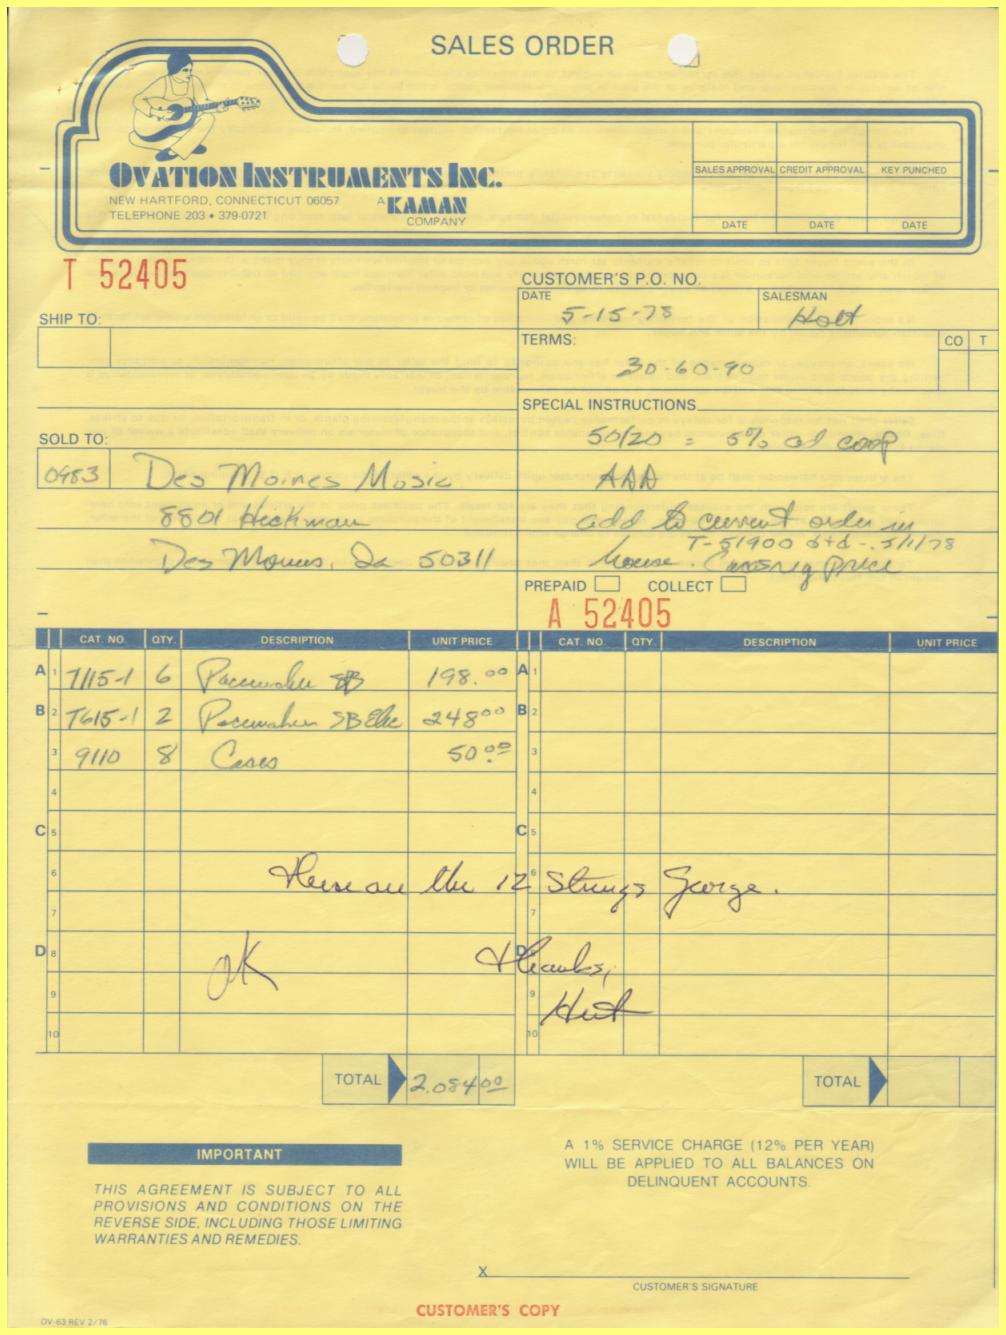 SALES ORDER
OVATION INSTRUMENTS INC.
NEW HARTFORD, CONNECTICUT 06057
TELEPHONE 203 • 379-0721
A KAMAN COMPANY
SALES APPROVAL CREDIT APPROVAL KEY PUNCHED
DATE DATE DATE
T 52405
CUSTOMER'S P.O. NO.
DATE 5-15-78 SALESMAN Holt
SHIP TO:
TERMS: CO T
30-60-90
SPECIAL INSTRUCTIONS
50/20 = 5% ad coop
SOLD TO:
0983 Des Moines Music
AAA
8801 Hickman
add to current order in
T-51900 dtd - 5/11/78
Des Moines, Ia 50311
house. Price
PREPAID COLLECT
A 52405
CAT. NO. QTY. DESCRIPTION UNIT PRICE CAT. NO. QTY. DESCRIPTION UNIT PRICE
A 1 7115-1 6 Pacemaker SB 198.00 A 1
B 2 7615-1 2 Pacemaker SB Elec 248 00 B 2
3 9110 8 Cases 50 00 3
4 4
C 5 C 5
6 These are the 12 Strings George. 6
7 7
D 8 OK Thanks, D 8
9 Holt 9
10 10
TOTAL 2,084 00 TOTAL
IMPORTANT
THIS AGREEMENT IS SUBJECT TO ALL
PROVISIONS AND CONDITIONS ON THE
REVERSE SIDE, INCLUDING THOSE LIMITING
WARRANTIES AND REMEDIES.
A 1% SERVICE CHARGE (12% PER YEAR)
WILL BE APPLIED TO ALL BALANCES ON
DELINQUENT ACCOUNTS.
X
CUSTOMER'S SIGNATURE
CUSTOMER'S COPY
OV-63 REV 2/76